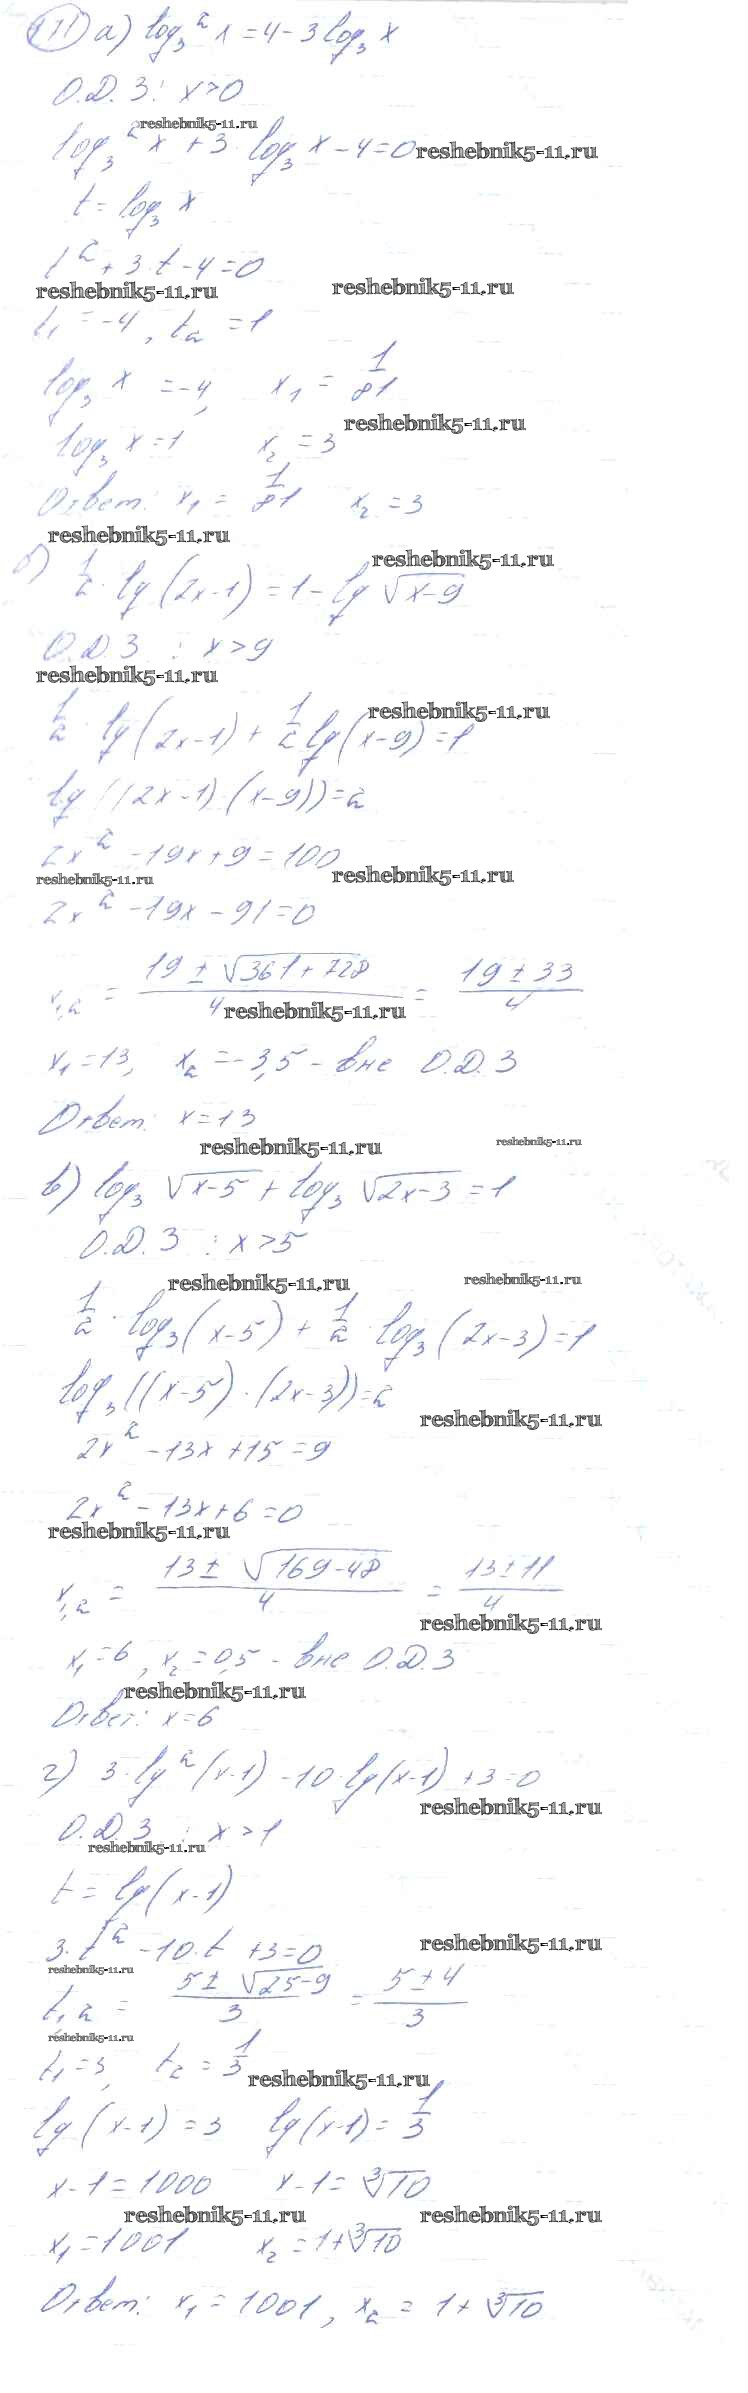 171 а) log₃² x = 4 - 3 log₃ x
О.Д.З: x > 0
reshebnik5-11.ru
log₃² x + 3 · log₃ x - 4 = 0 reshebnik5-11.ru
t = log₃ x
t² + 3·t - 4 = 0
reshebnik5-11.ru reshebnik5-11.ru
t₁ = -4, t₂ = 1
log₃ x = -4, x₁ = 1/81
reshebnik5-11.ru
log₃ x = 1 x₂ = 3
Ответ: x₁ = 1/81 x₂ = 3
reshebnik5-11.ru
reshebnik5-11.ru
б) 1/2 · lg(2x-1) = 1 - lg √(x-9)
О.Д.З : x > 9
reshebnik5-11.ru
reshebnik5-11.ru
1/2 · lg(2x-1) + 1/2 lg(x-9) = 1
lg((2x-1)·(x-9)) = 2
2x² - 19x + 9 = 100
reshebnik5-11.ru reshebnik5-11.ru
2x² - 19x - 91 = 0
x₁,₂ = (19 ± √(361 + 728))/4 = (19 ± 33)/4
reshebnik5-11.ru
x₁ = 13, x₂ = -3,5 - вне О.Д.З
Ответ: x = 13
reshebnik5-11.ru reshebnik5-11.ru
в) log₃ √(x-5) + log₃ √(2x-3) = 1
О.Д.З : x > 5
reshebnik5-11.ru reshebnik5-11.ru
1/2 · log₃(x-5) + 1/2 · log₃(2x-3) = 1
log₃((x-5)·(2x-3)) = 2
reshebnik5-11.ru
2x² - 13x + 15 = 9
2x² - 13x + 6 = 0
reshebnik5-11.ru
x₁,₂ = (13 ± √(169-48))/4 = (13 ± 11)/4
reshebnik5-11.ru
x₁ = 6, x₂ = 0,5 - вне О.Д.З
reshebnik5-11.ru
Ответ: x = 6
г) 3·lg²(x-1) - 10·lg(x-1) + 3 = 0
reshebnik5-11.ru
О.Д.З : x > 1
reshebnik5-11.ru
t = lg(x-1)
3·t² - 10·t + 3 = 0 reshebnik5-11.ru
reshebnik5-11.ru
t₁,₂ = (5 ± √(25-9))/3 = (5 ± 4)/3
reshebnik5-11.ru
t₁ = 3, t₂ = 1/3
reshebnik5-11.ru
lg(x-1) = 3 lg(x-1) = 1/3
x-1 = 1000 x-1 = ∛10
reshebnik5-11.ru reshebnik5-11.ru
x₁ = 1001 x₂ = 1 + ∛10
Ответ: x₁ = 1001, x₂ = 1 + ∛10